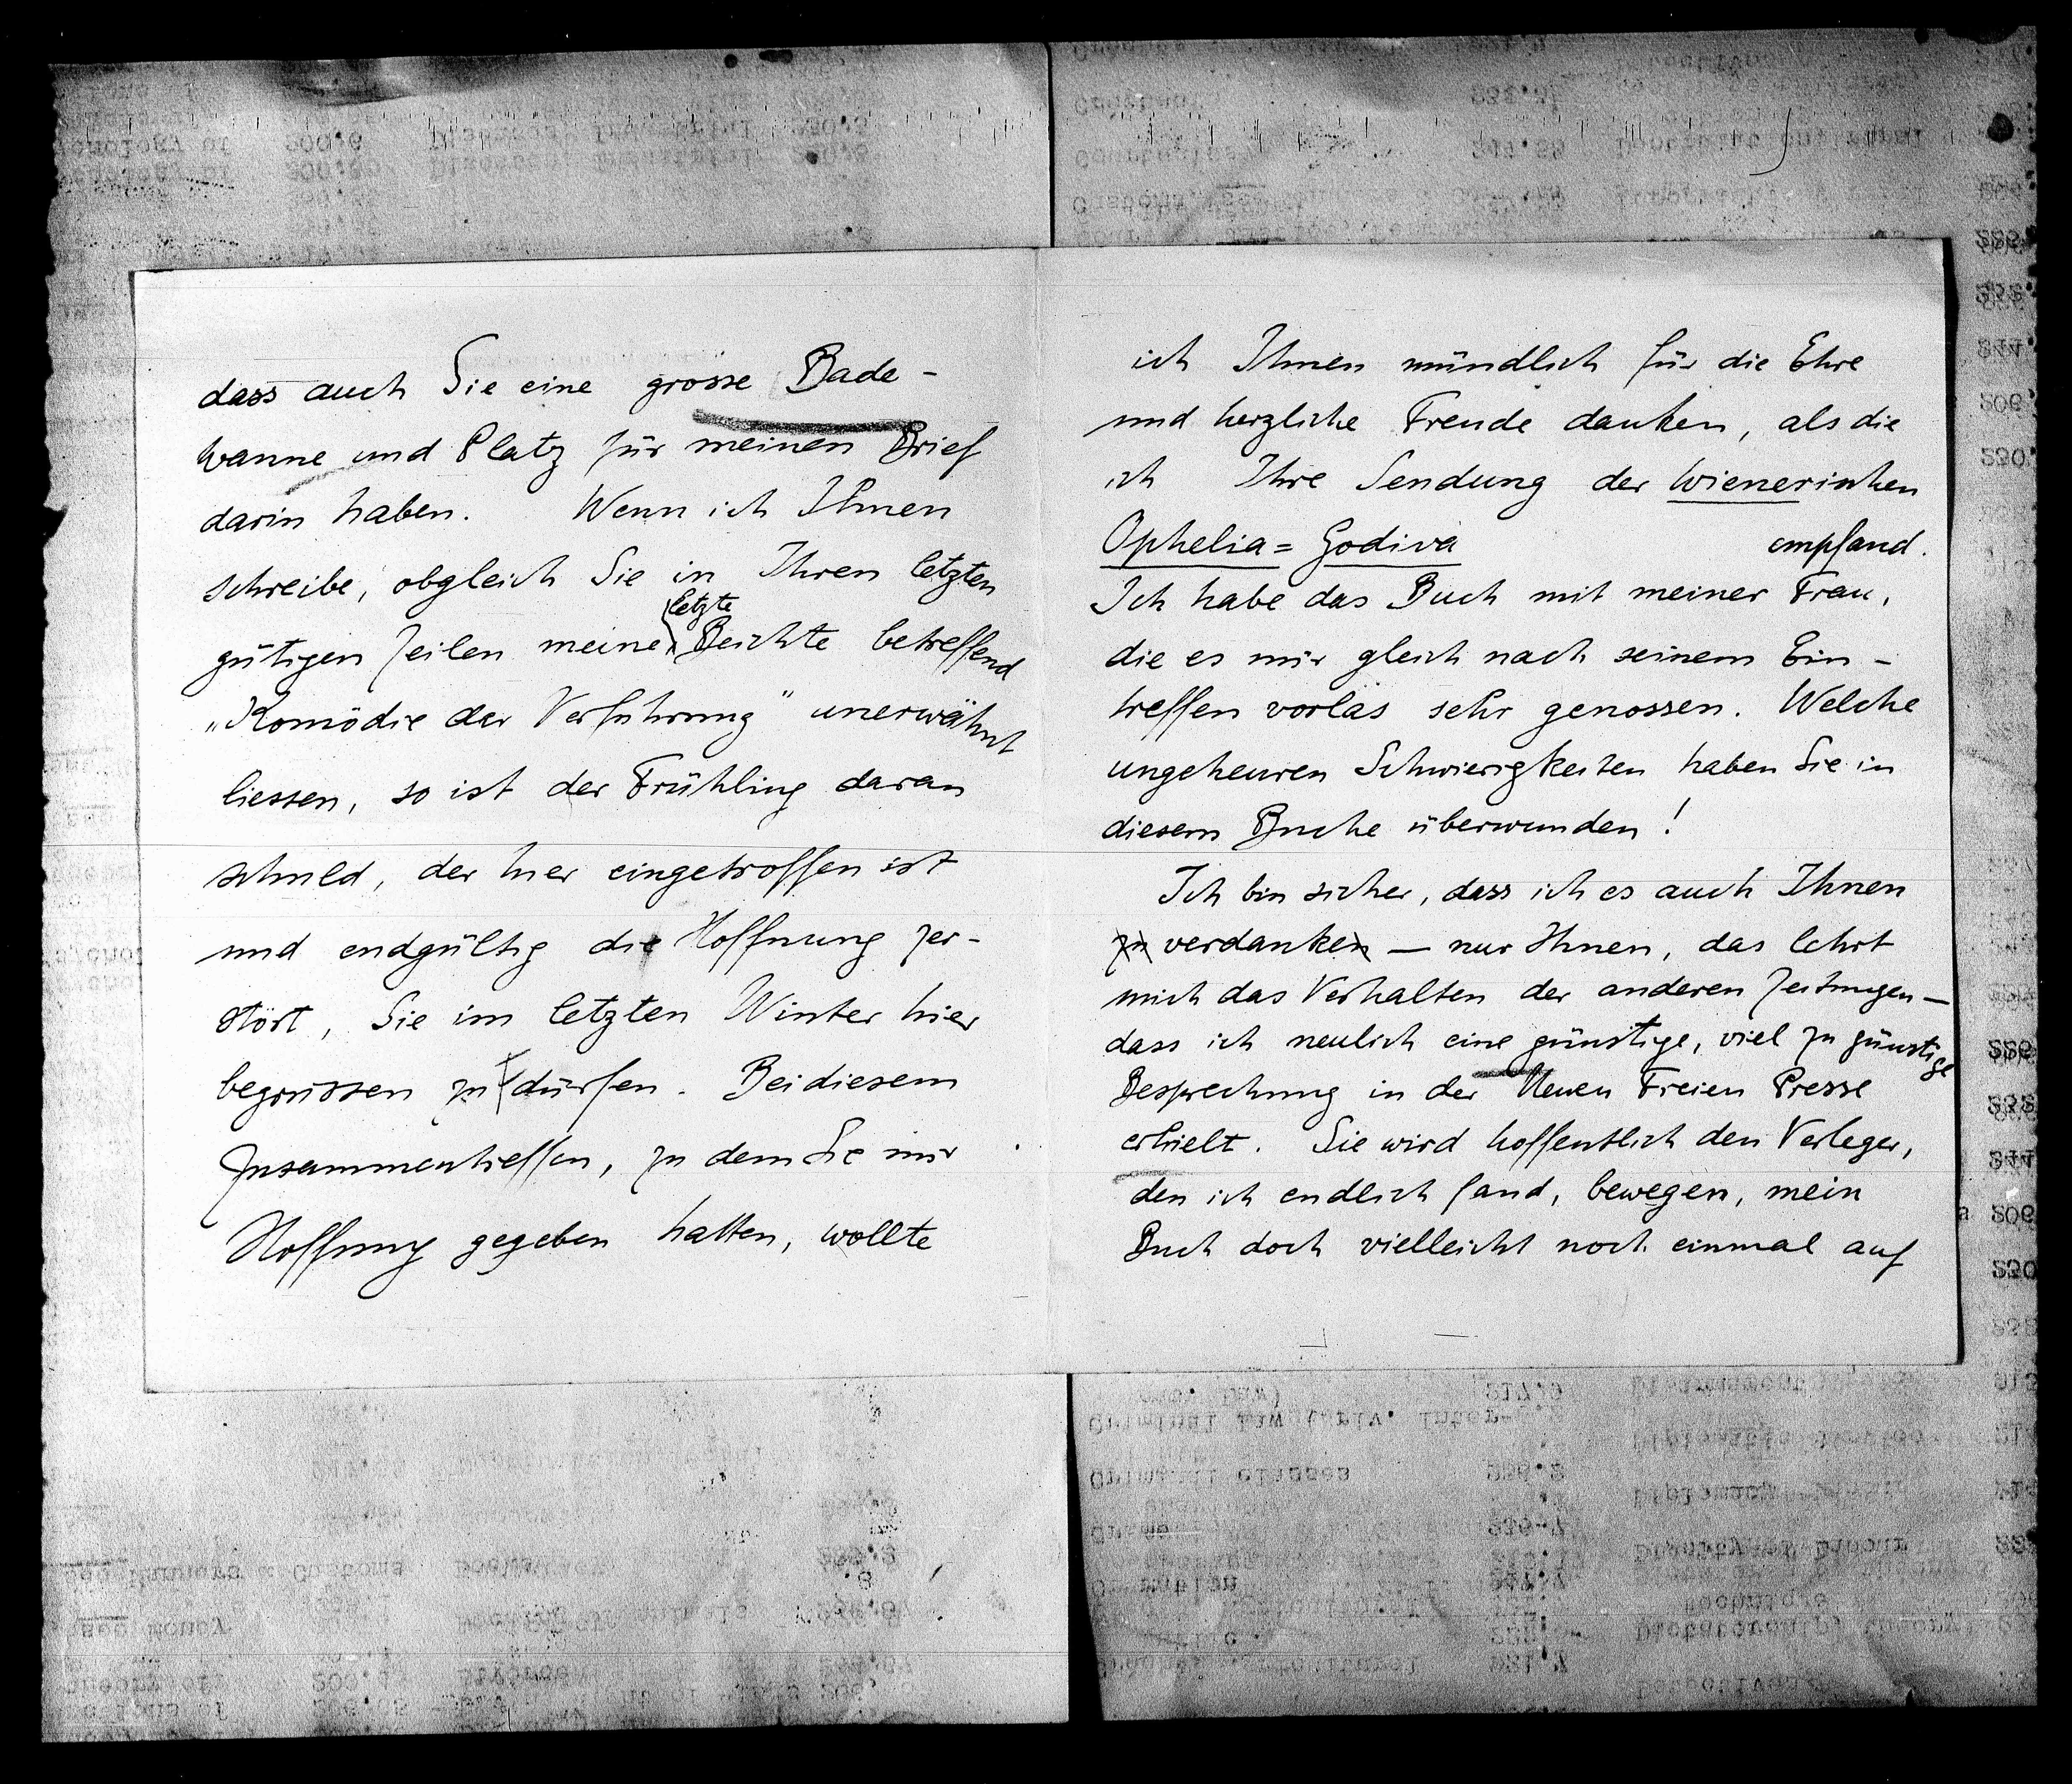 dass auch Sie eine grosse Bade-
wanne und Platz für meinen Brief
darin haben. Wenn ich Ihnen
schreibe, obgleich Sie in Ihren letzten
gütigen Zeilen meine letzte Beichte betreffend
„Komödie der Verführung" unerwähnt
liessen, so ist der Frühling daran
schuld, der hier eingetroffen ist
und endgültig die Hoffnung zer-
stört, Sie im letzten Winter hier
begrüssen zu dürfen. Bei diesem
Zusammentreffen, zu dem Sie mir
Hoffnung gegeben hatten, wollte
ich Ihnen mündlich für die Ehre
und herzliche Freude danken, als die
ich Ihre Sendung der wienerischen
Ophelia = Godiva empfand.
Ich habe das Buch mit meiner Frau,
die es mir gleich nach seinem Ein-
treffen vorlas sehr genossen. Welche
ungeheuren Schwierigkeiten haben Sie in
diesem Buche überwunden!
Ich bin sicher, dass ich es auch Ihnen
zu verdanken — nur Ihnen, das lehrt
mich das Verhalten der anderen Zeitungen —
dass ich neulich eine günstige, viel zu günstige
Besprechung in der Neuen Freien Presse
erhielt. Sie wird hoffentlich den Verleger,
den ich endlich fand, bewegen, mein
Buch doch vielleicht noch einmal auf